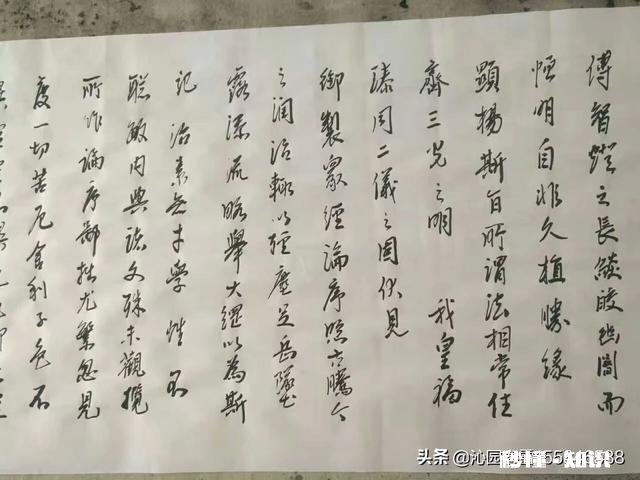 傳智燈之長燄皎幽闇而
恒明自非久植勝緣
顯揚斯旨所謂法相常住
齊三光之明 我皇福
臻同二儀之固伏見
御製衆經論序照古騰今
之潤治輒以輕塵足岳墜
露添流略舉大綱以為斯
記 治素無才學性不
聰敏內典諸文殊未觀攬
所作論序鄙拙尤繁忽見
度一切苦厄舍利子色不
头条 @沁园